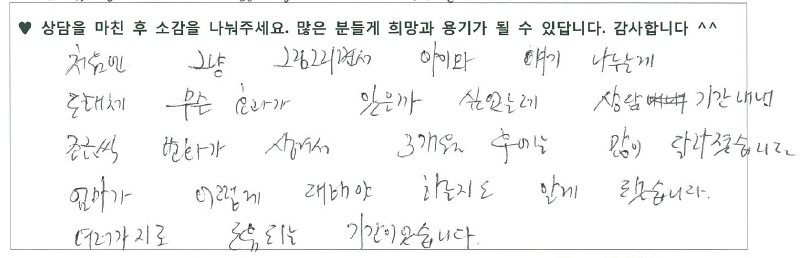 ♥ 상담을 마친 후 소감을 나눠주세요. 많은 분들게 희망과 용기가 될 수 있답니다. 감사합니다 ^^
처음엔 그냥 그림그리면서 아이와 얘기 나누는게
도대체 무슨 효과가 있을까 싶었는데 상담 기간내내
조금씩 변화가 생겨서 3개월 후에는 많이 달라졌습니다
엄마가 어떻게 대해야 하는지도 알게 됐습니다.
여러가지로 도움되는 기간이었습니다.